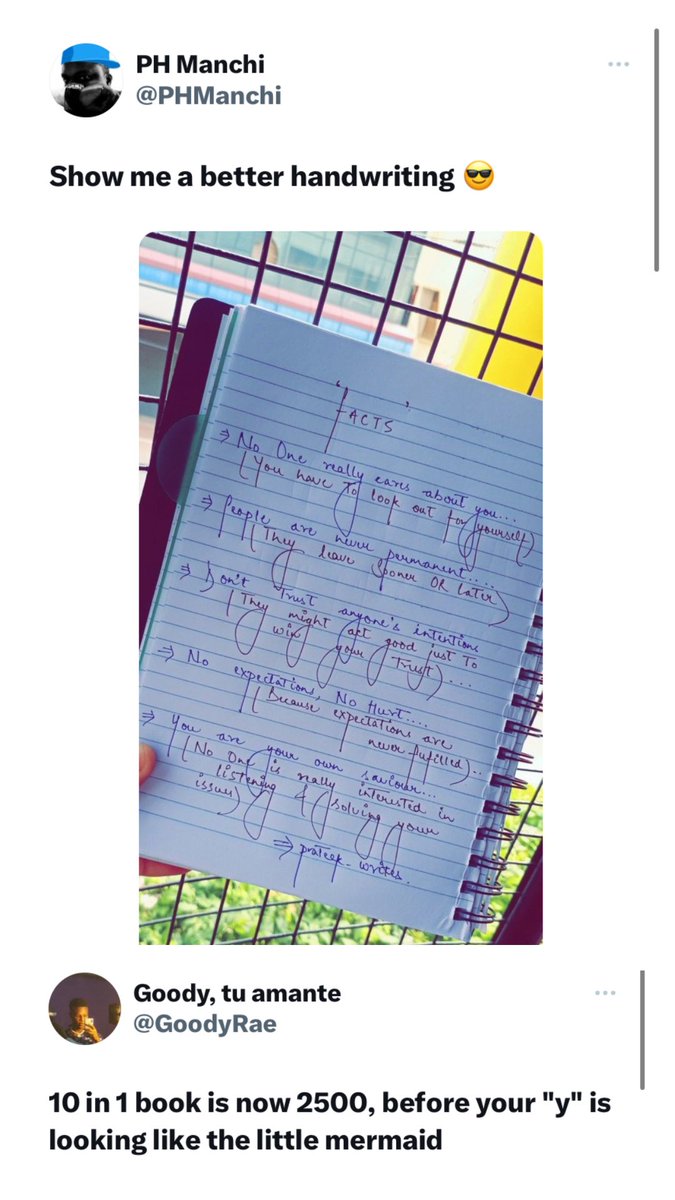 PH Manchi
@PHManchi
Show me a better handwriting 😎
"FACTS"
⇒ No One really cares about you...
(You have To look out for yourself)
⇒ People are never permanent....
(They leave Sooner OR Later)
⇒ Don't Trust anyone's intentions
(They might act good just To
win your Trust)....
⇒ No expectations, No Hurt....
(Because expectations are
never fulfilled)..
⇒ You are your own saviour...
(No One is really interested in
listening & solving your
issues)
⇒ prateek-writes.
Goody, tu amante
@GoodyRae
10 in 1 book is now 2500, before your "y" is
looking like the little mermaid